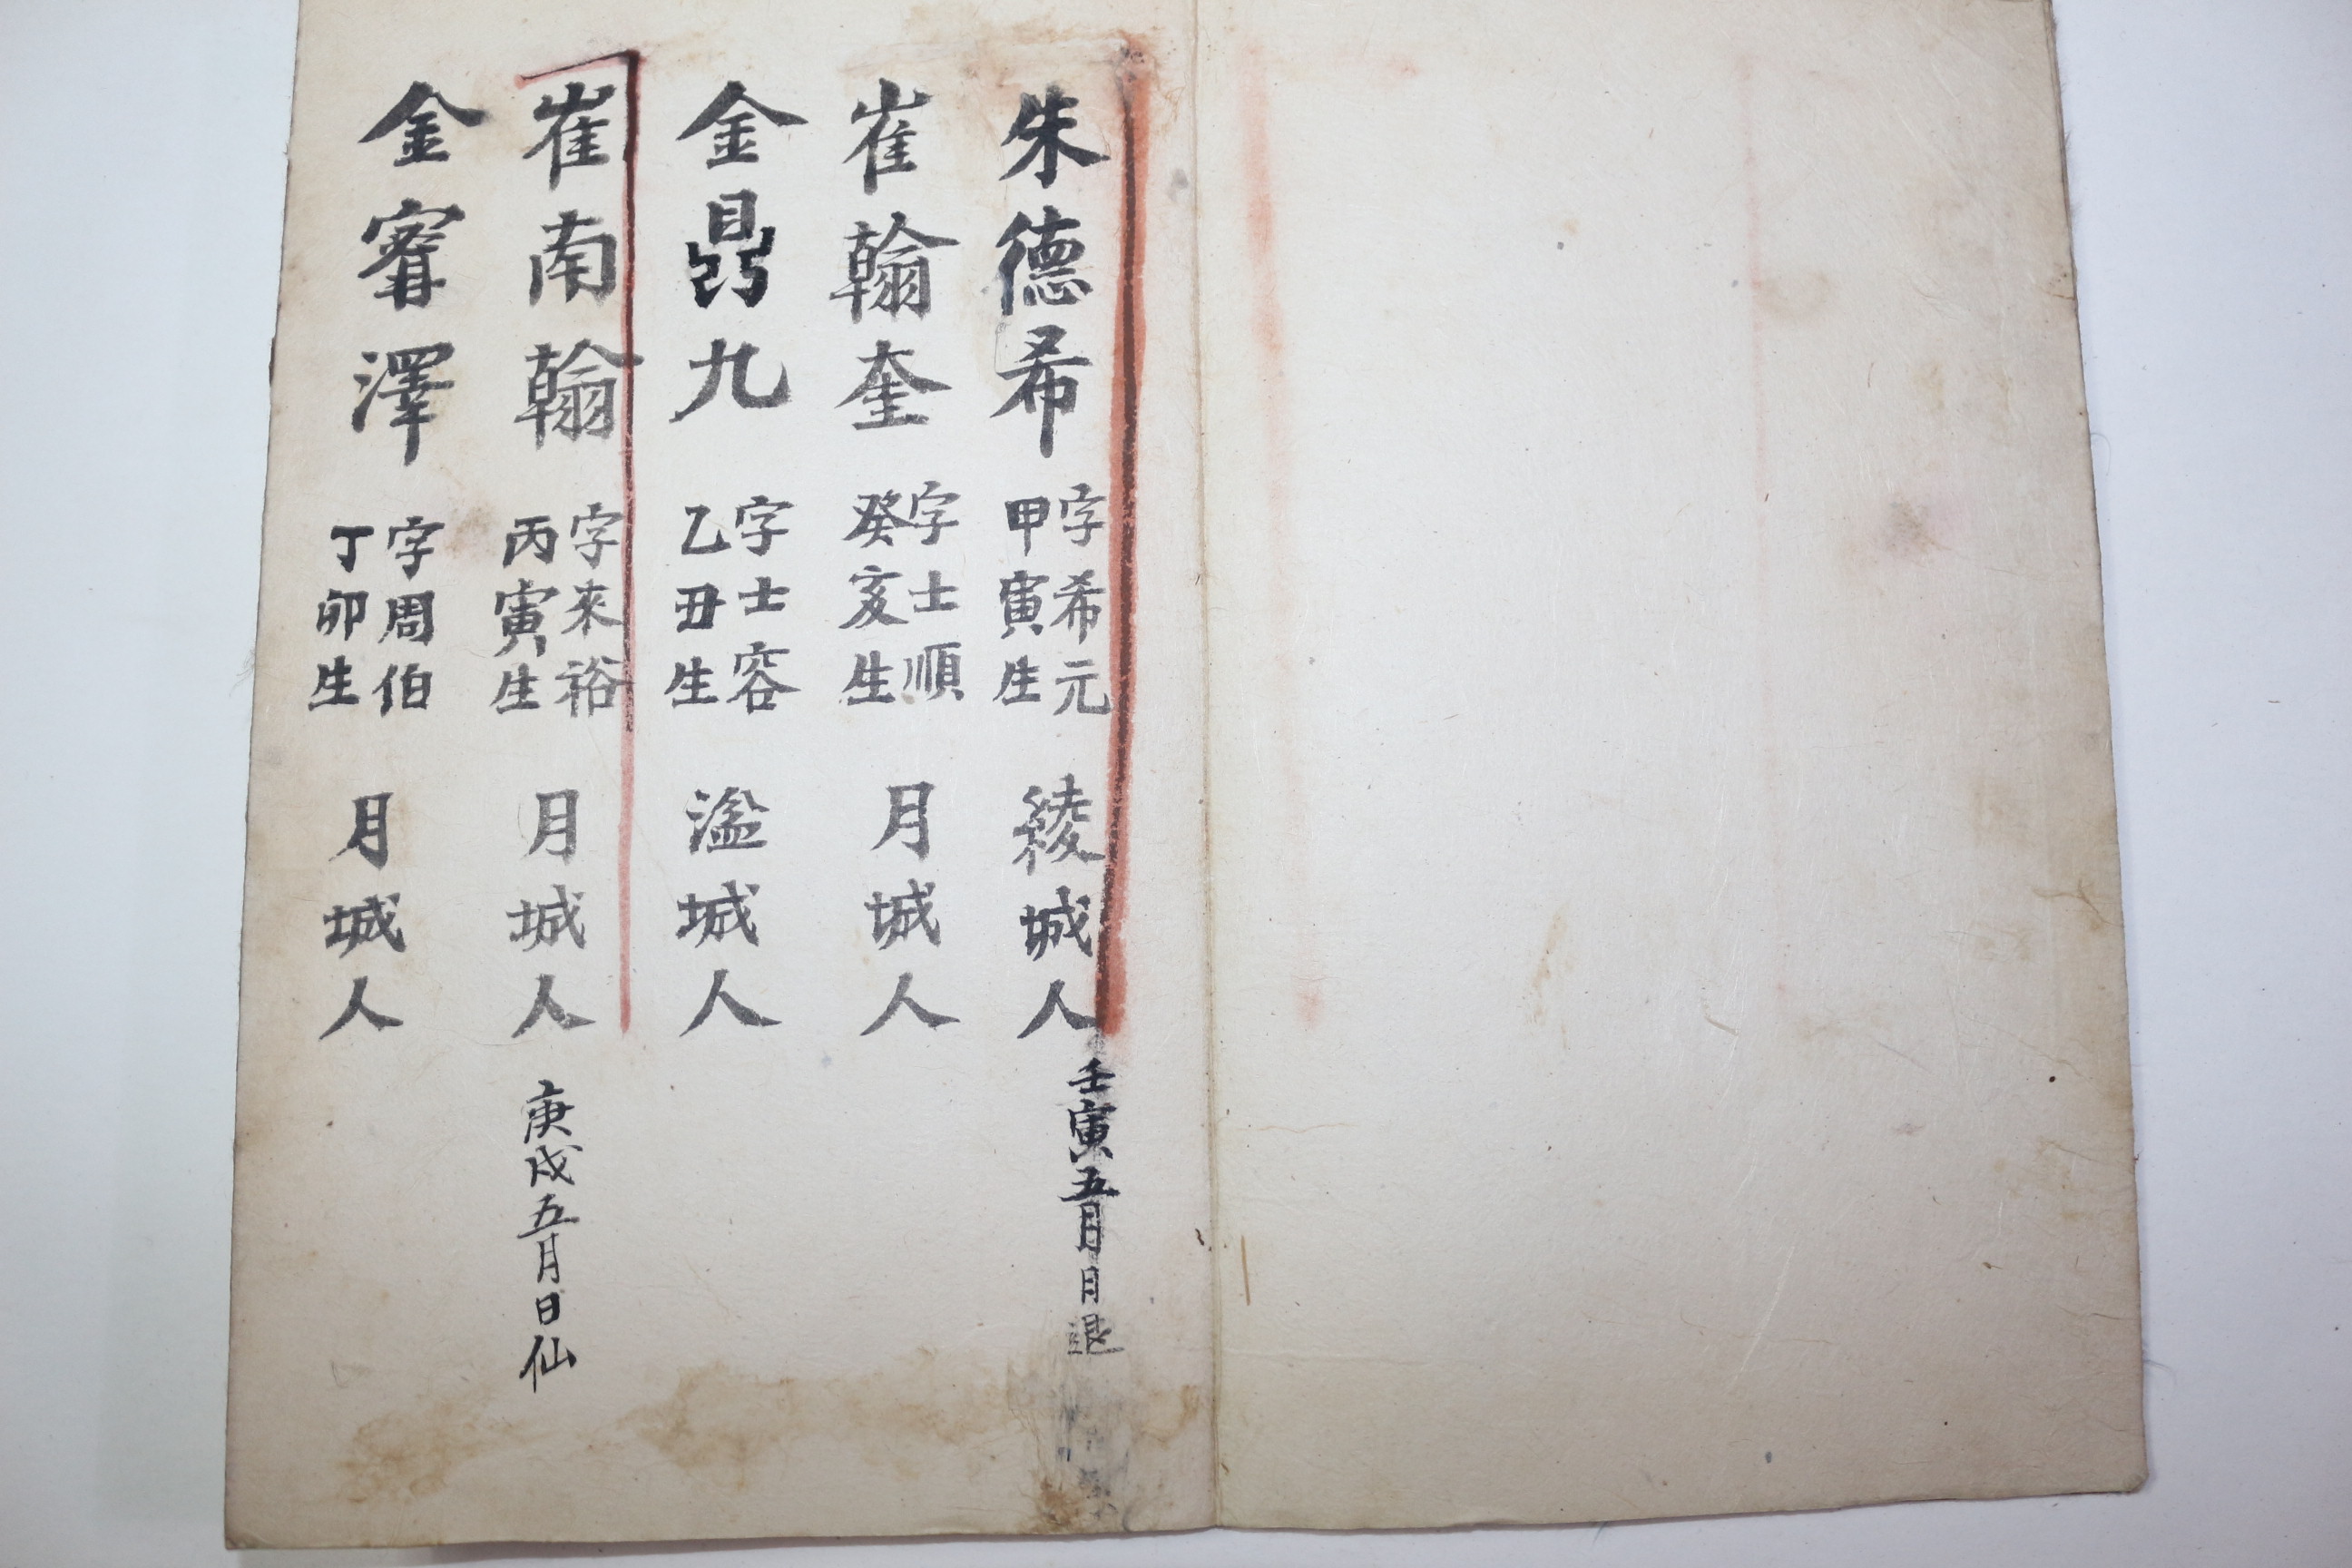 朱德希 字希元 甲寅生 綾城人 壬寅五月日退
崔翰奎 字士順 癸亥生 月城人
金鼎九 字士容 乙丑生 濫城人
崔南翰 字來裕 丙寅生 月城人 庚戌五月日仙
金寗澤 字周伯 丁卯生 月城人